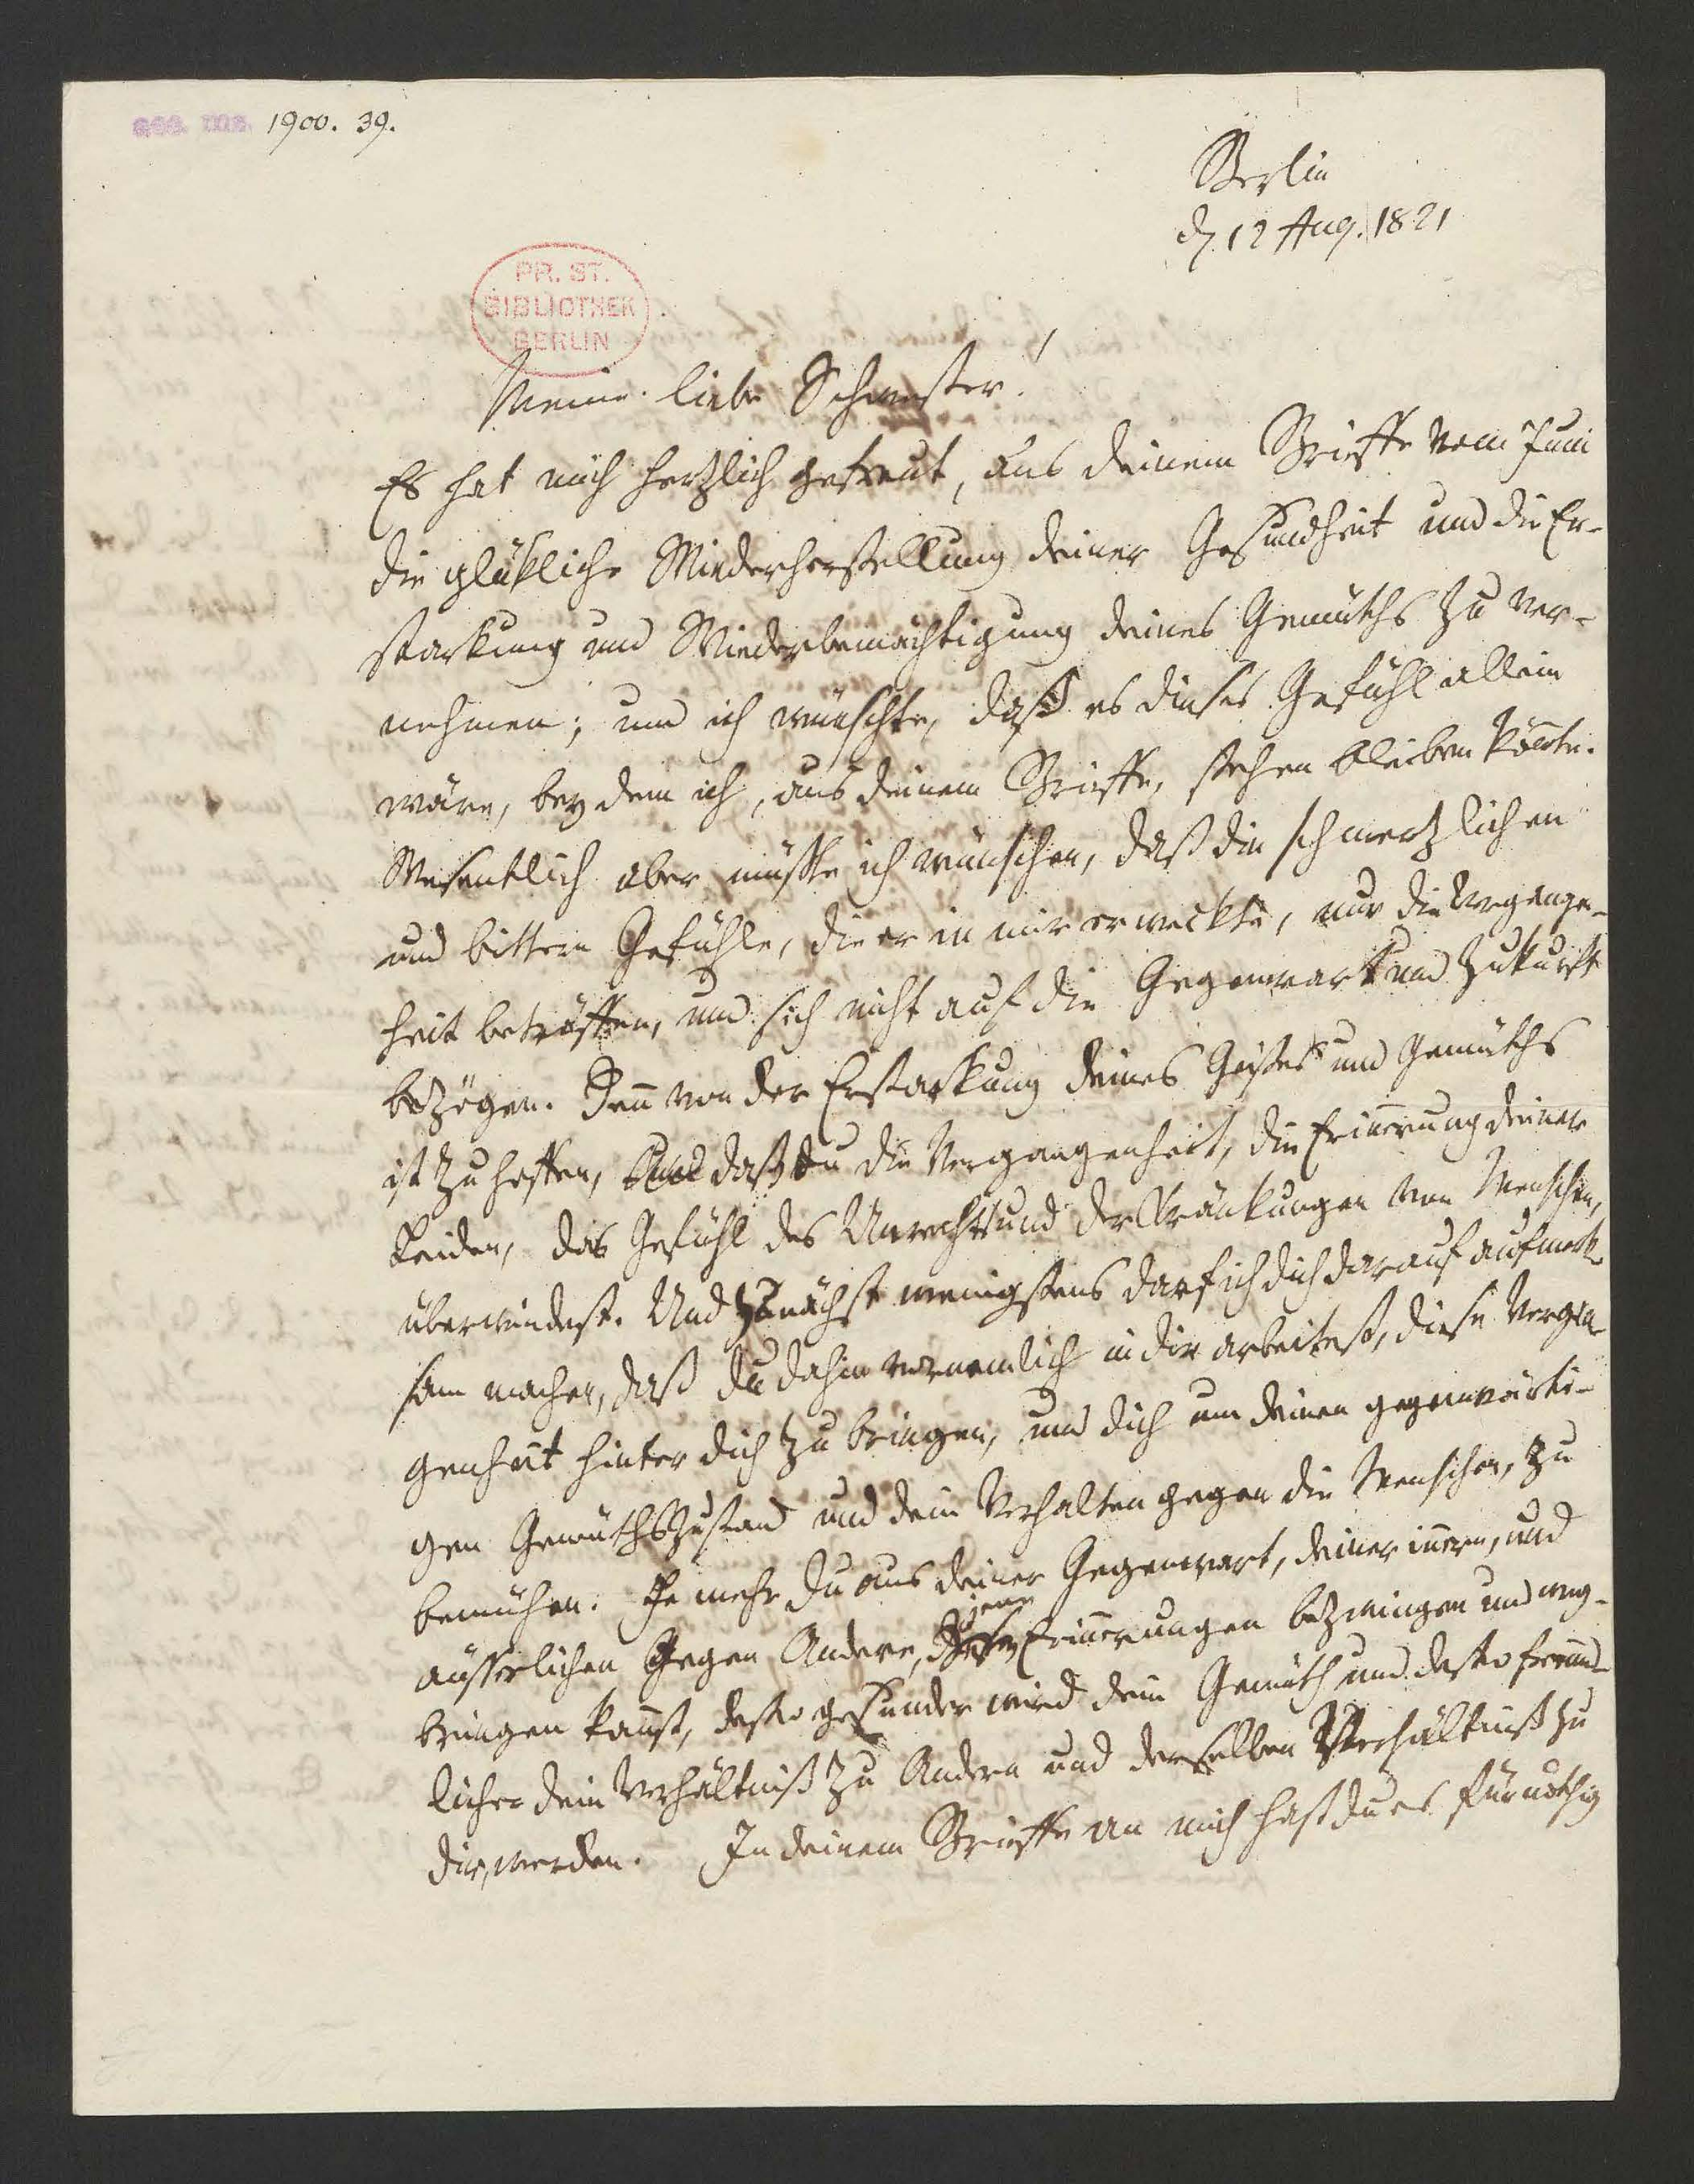 acc. ms. 1900. 39.
Berlin
d. 12 Aug. 1821
PR. ST.
BIBLIOTHEK
BERLIN
Meine liebe Schwester!
Es hat mich hertzlich gefreut, aus deinem Brieffe vom Juni
die glükliche Wiederherstellung deiner Gesundheit und die Er-
starkung und Wiederbemächtigung deines Gemüths zu ver-
nehmen; und ich wünschte, daß es dieses Gefühl allein
wäre, bey dem ich, aus deinem Brieffe, stehen bleiben könte.
Wesentlich aber müßte ich wünschen, daß die schmertzlichen
und bittern Gefühle, die er in mir erweckte, nur die Vergangen-
heit beträffen, und sich nicht auf die Gegenwart und Zukunft
bezögen. Denn von der Erstarkung deines Geistes und Gemüths
ist zu hoffen, daß du die Vergangenheit, die Erinnerung deiner
Leiden, das Gefühl des Unrechts und der Kränkungen von Menschen,
überwindest. Und zunächst wenigstens darf ich dich darauf aufmerk-
sam machen, daß du dahin vornemlich in dir arbeitest, diese Vergan-
genheit hinter dich zu bringen, und dich um deinen gegenwärti-
gen Gemüthszustand und dein Verhalten gegen die Menschen, zu
bemühen. Je mehr du aus deiner Gegenwart, deiner innern, und
äusserlichen gegen Andere, jene Erinnerungen bezwingen und weg-
bringen kannst, desto gesunder wird dein Gemüth und desto freund-
licher dein Verhältniß zu Andern und derselben Verhältniß zu
dir, werden. In deinem Brieffe an mich hast du es für nöthig